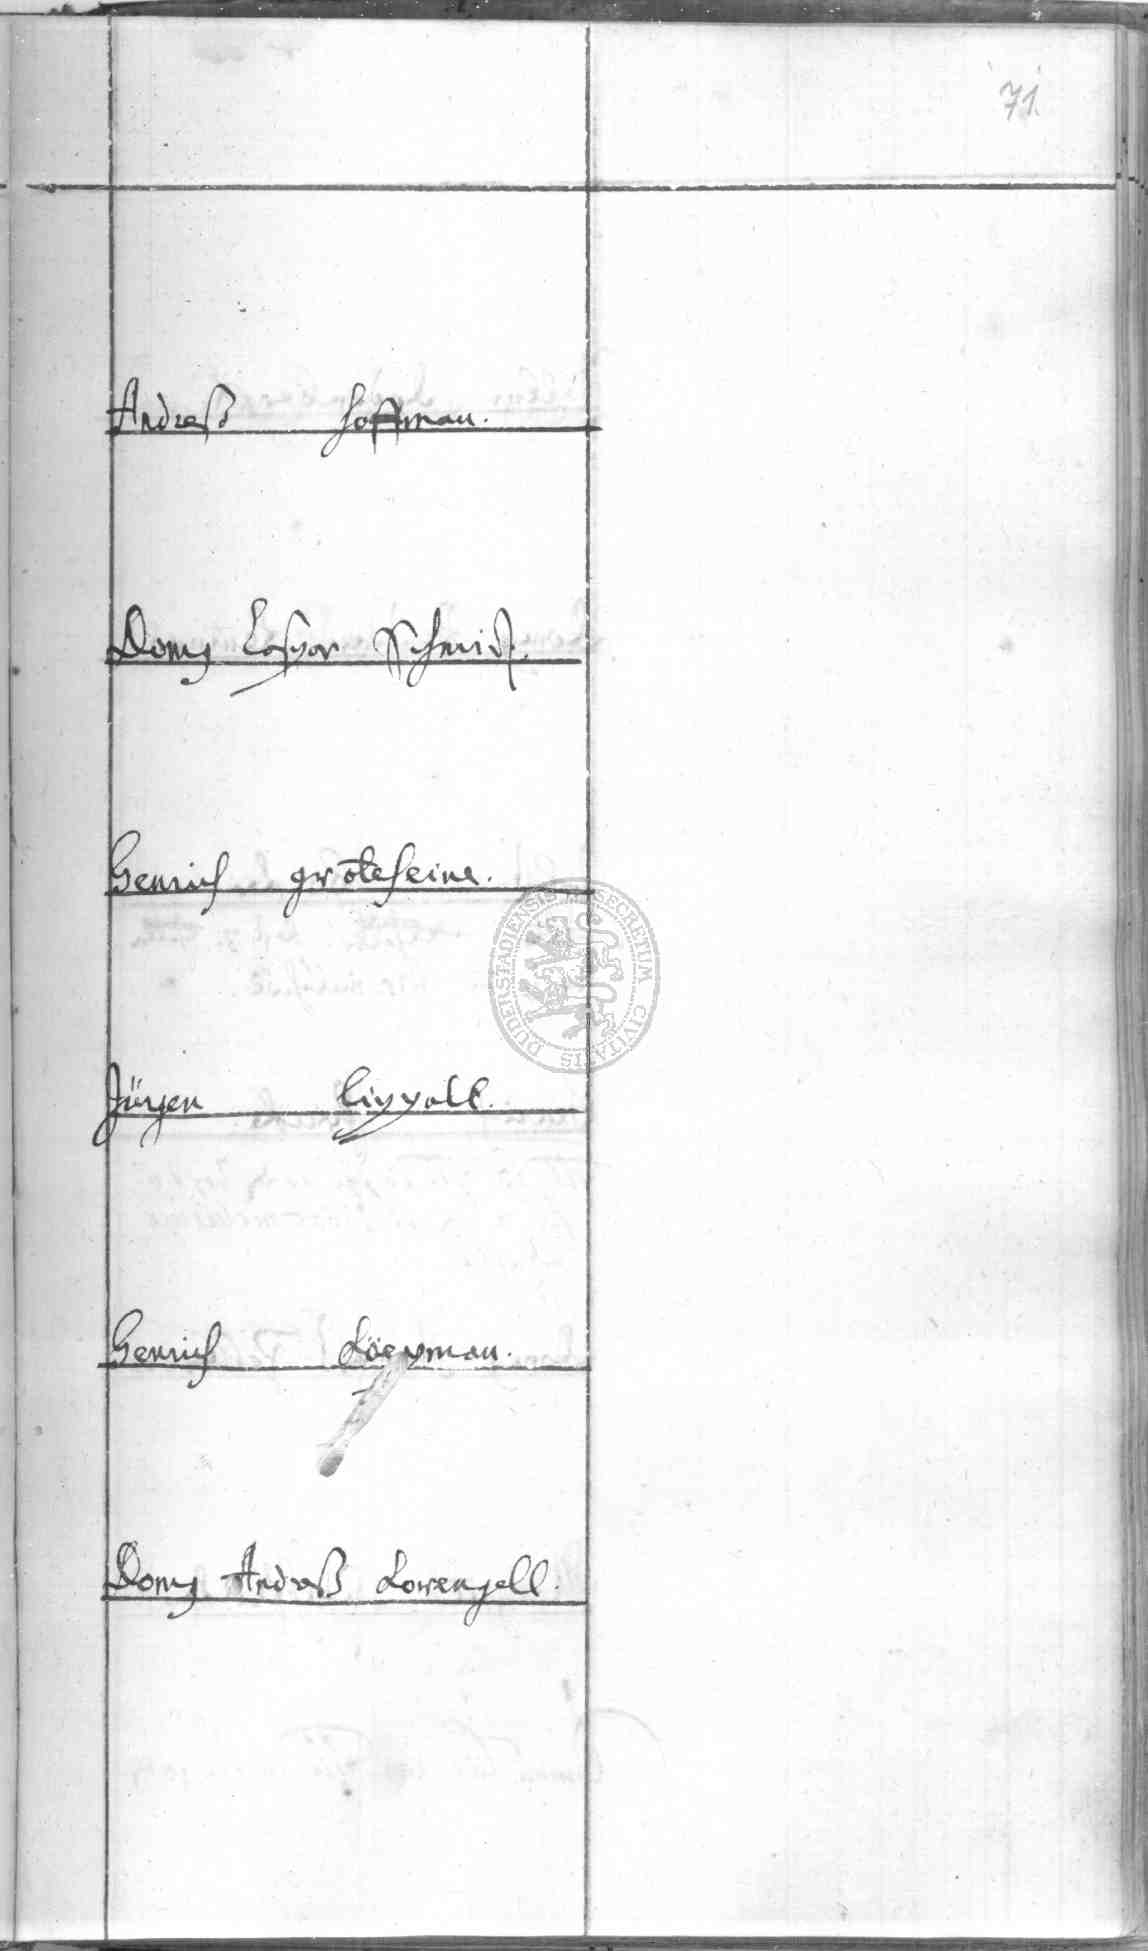 71.
Andreß Hoffman.
Domus Caspar Schmidt.
Henrich grōteheine.
Jürgen Lippolt.
Henrich Koepman.
Domus Andreß Lorengell.
SECRETUM CIVITATIS DUDERSTADIENSIS